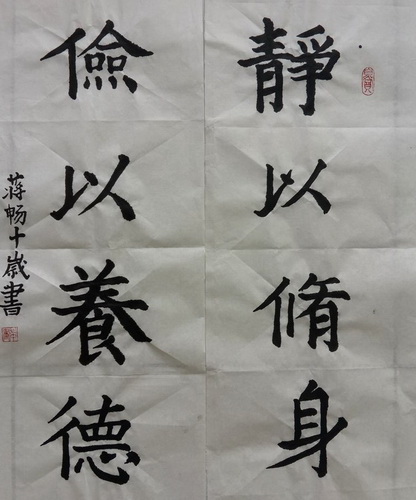 靜以脩身
儉以養德
蒋畅十歲書